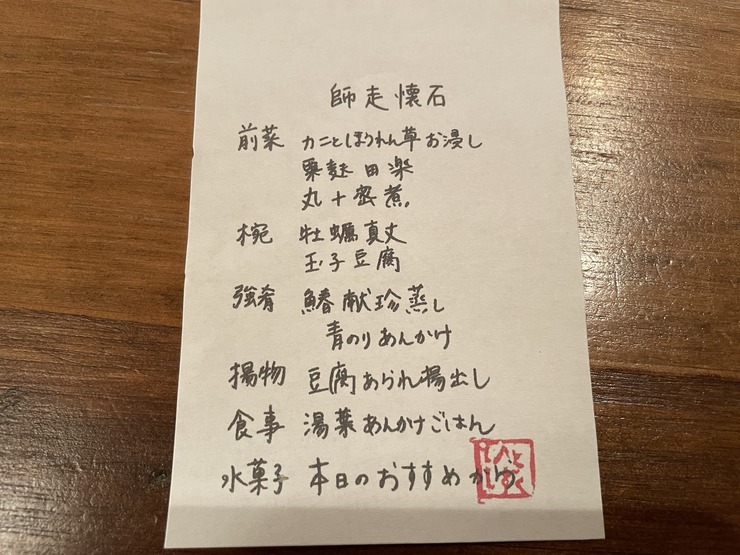 師走懐石
前菜 カニとほうれん草お浸し
栗麩田楽
丸十密煮
椀 牡蠣真丈
玉子豆腐
強肴 鰆献珍蒸し
青のりあんかけ
揚物 豆腐あられ揚出し
食事 湯葉あんかけごはん
水菓子 本日のおすすめから